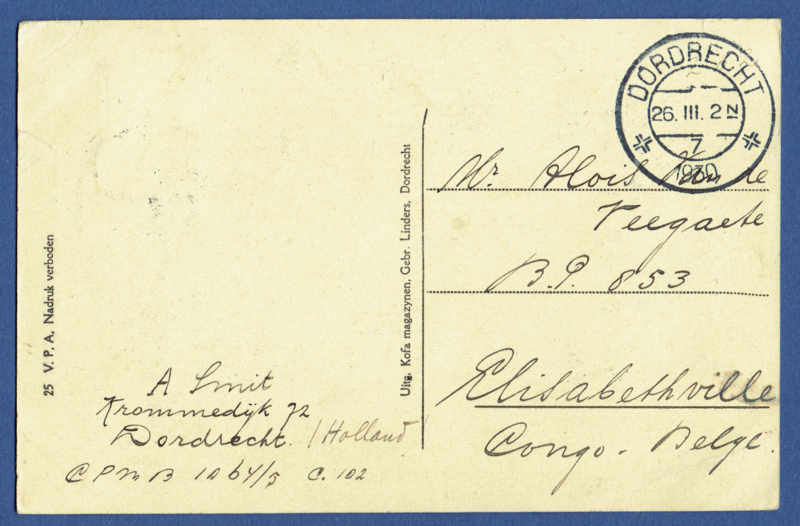 DORDRECHT
26. III. 2 N
7
1930
Mr. Alois Van de
Veegaete
B.P. 853
Elisabethville
Congo. Belge.
25 V. P. A. Nadruk verboden
Uitg. Kofa magazynen, Gebr. Linders, Dordrecht
A Smit
Krommedyk 72
Dordrecht. /Holland
C P M B 1064/5 C. 102